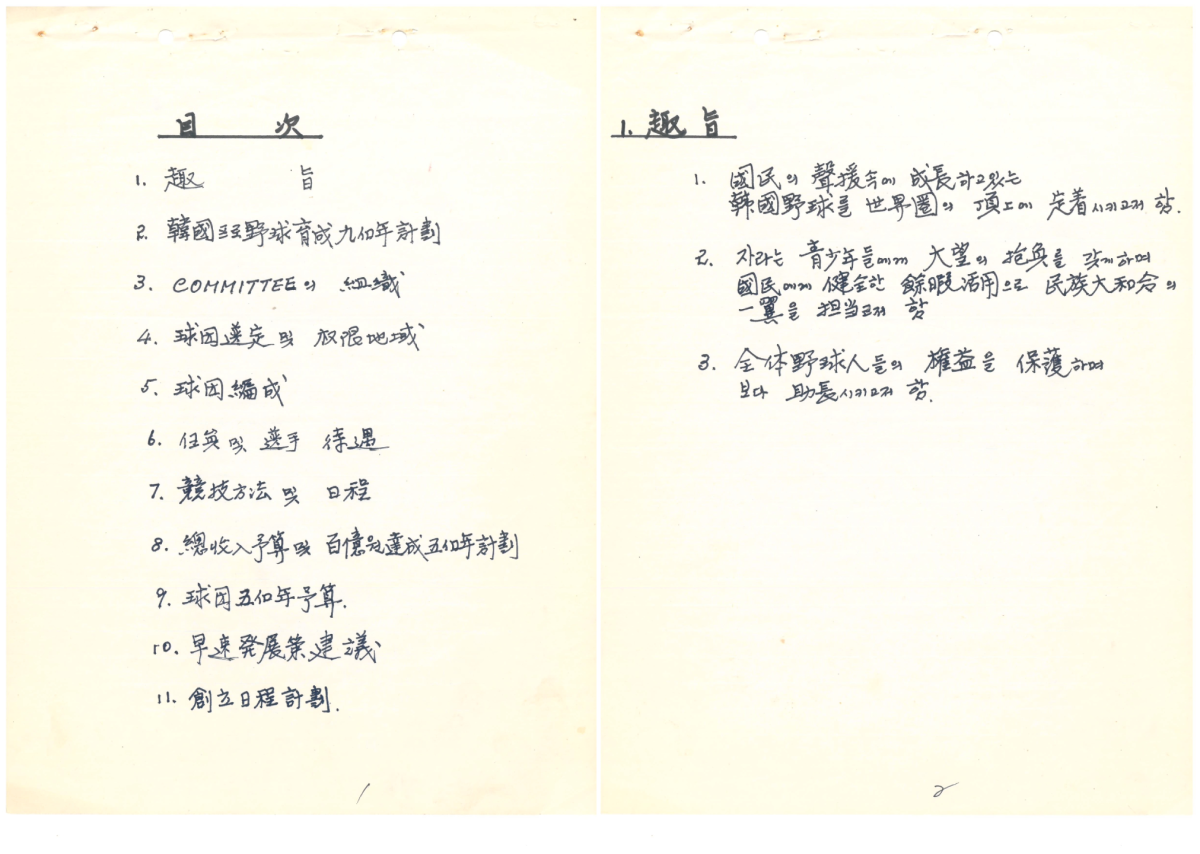 目 次
1. 趣 旨
2. 韓國프로野球育成九個年計劃
3. COMMITTEE의 組織
4. 球団選定 및 权限地域
5. 球団編成
6. 任員 및 選手 待遇
7. 競技方法 및 日程
8. 總收入予算 및 百億원達成五個年計劃
9. 球団五個年予算.
10. 早速発展策建議
11. 創立日程計劃.
1
1. 趣旨
1. 國民의 聲援속에 成長하고있는
韓國野球를 世界圈의 頂上에 定着시키고저 함.
2. 자라는 靑少年들에게 大望의 抱負를 갖게하며
國民에게 健全한 餘暇活用으로 民族大和合의
一翼을 担当코저 함
3. 全体野球人들의 權益을 保護하며
보다 助長시키고저 함.
2